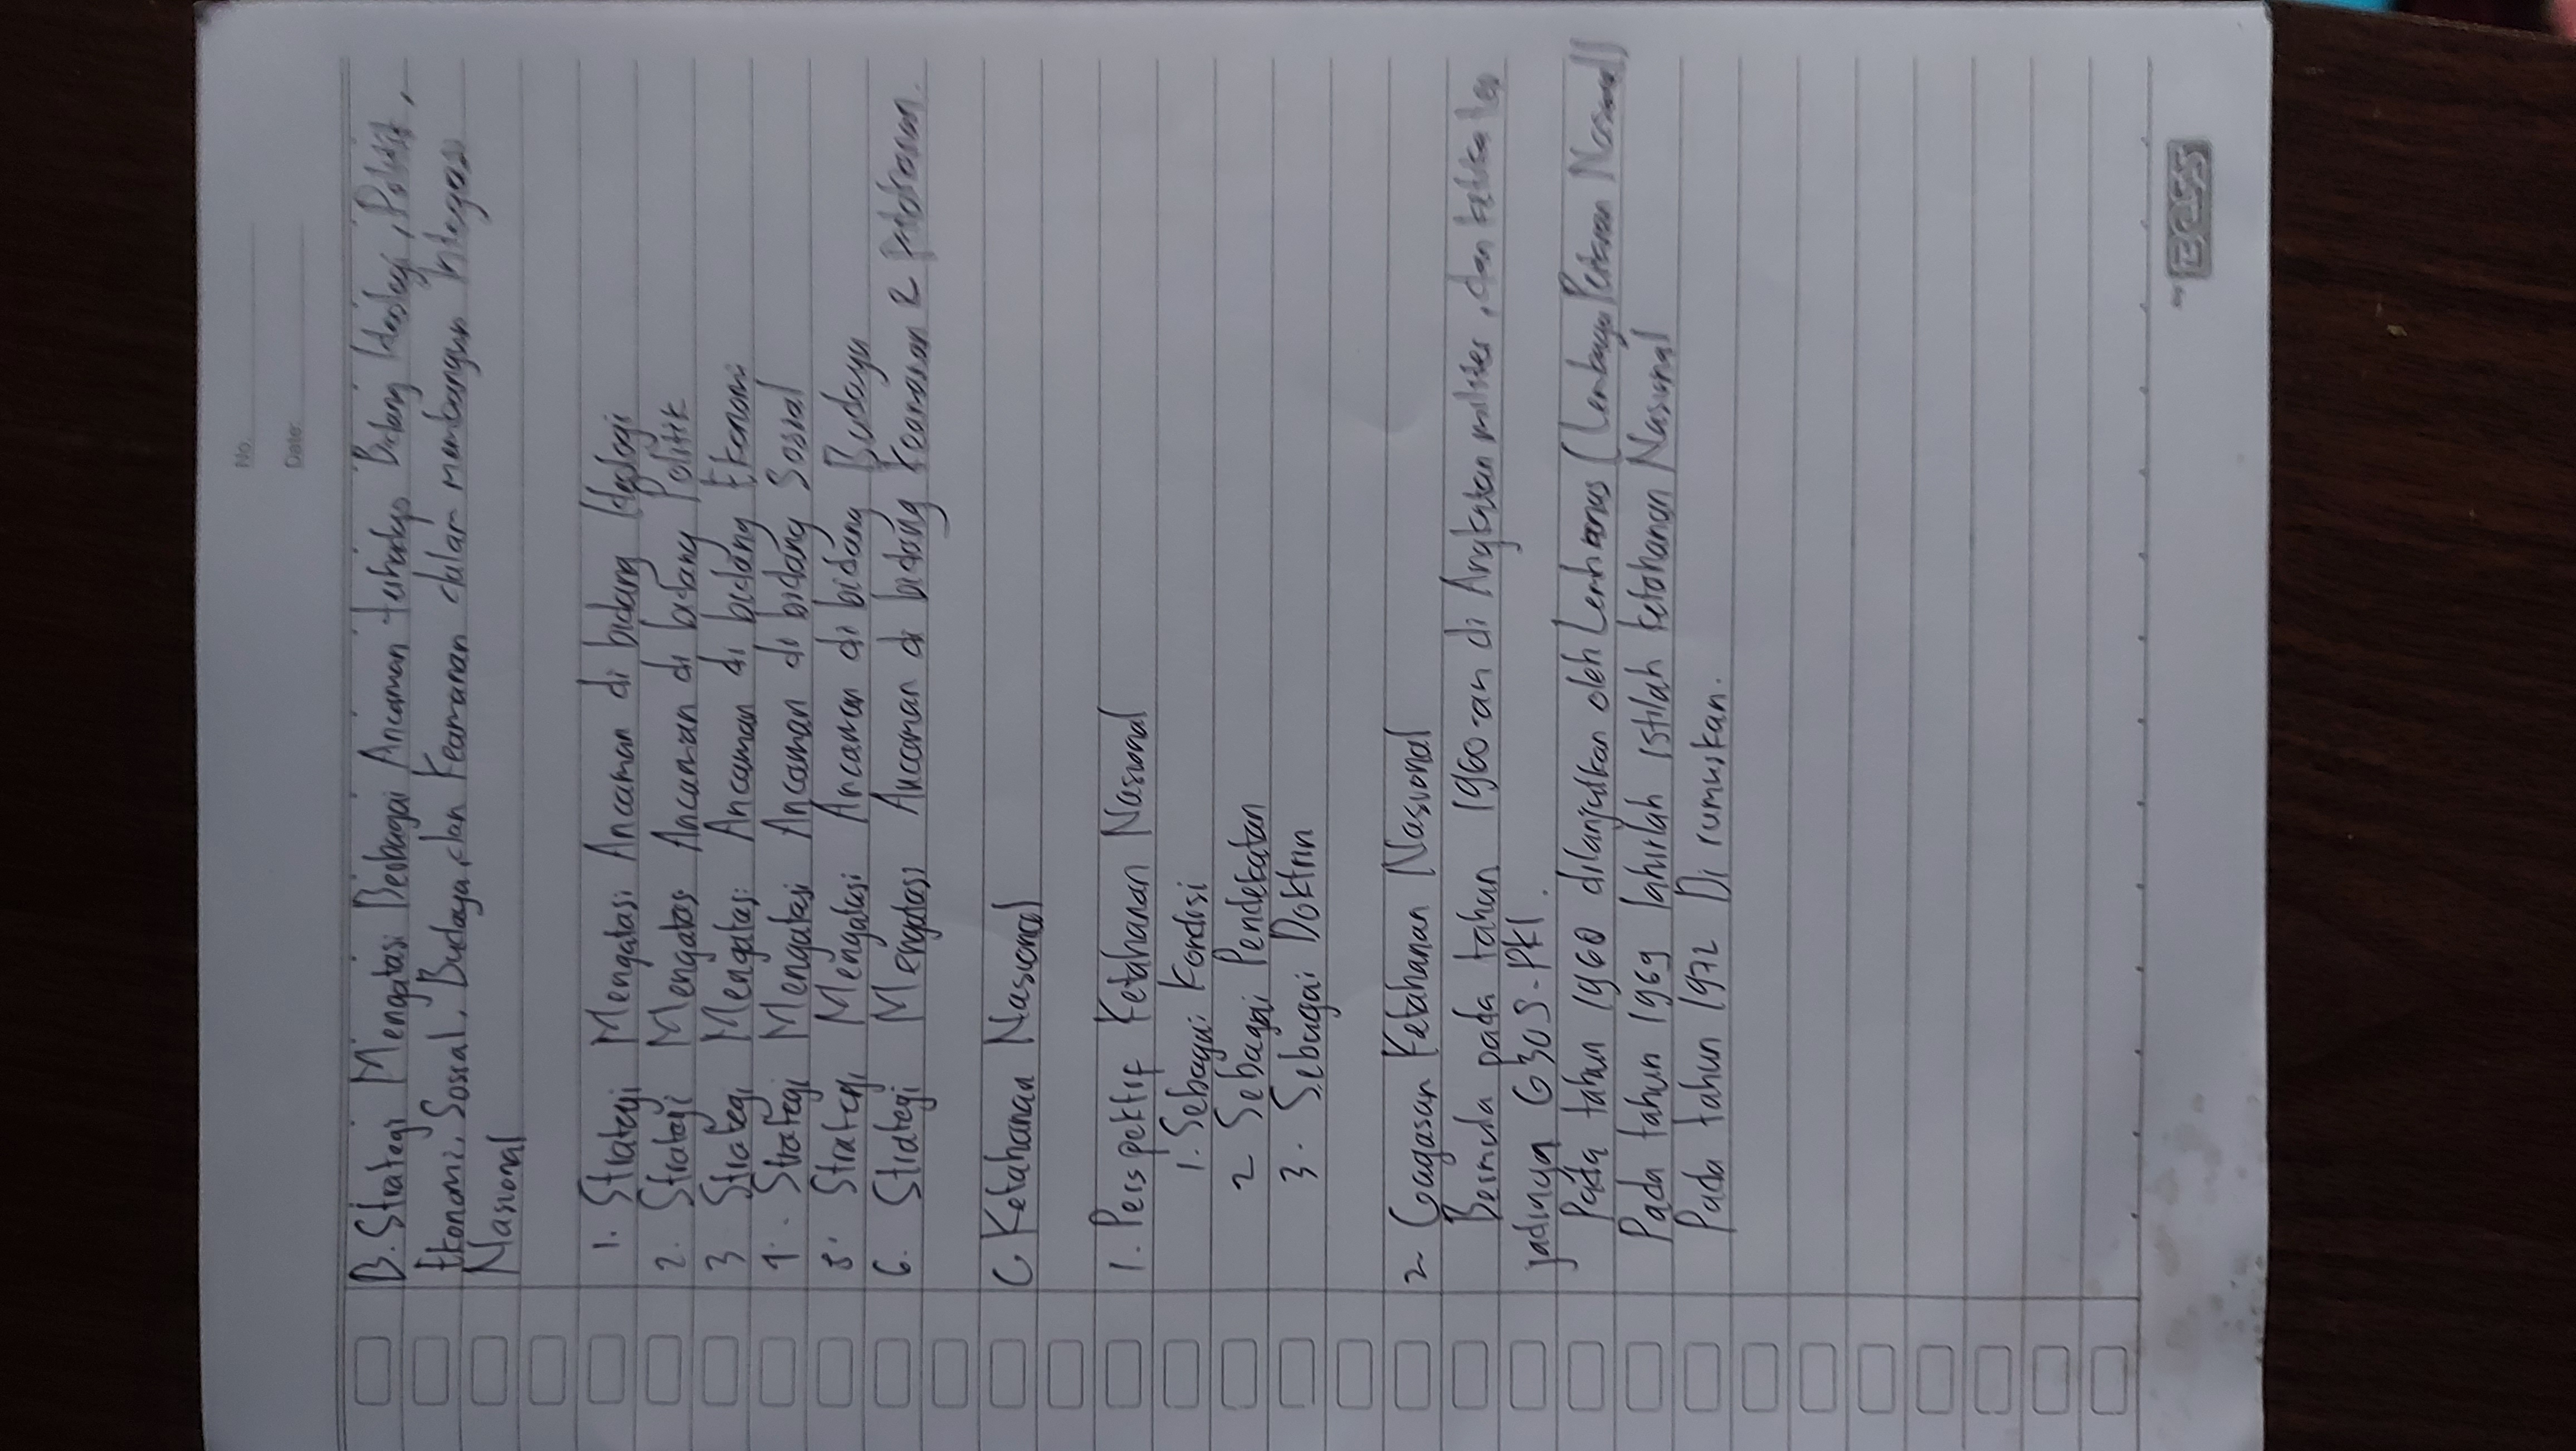 No.
Date:
B. Strategi Mengatasi Berbagai Ancaman terhadap Bidang Ideologi, Politik,
Ekonomi, Sosial, Budaya, dan Keamanan dalam membangun Integrasi
Nasional
1. Strategi Mengatasi Ancaman di bidang Ideologi
2. Strategi Mengatasi Ancaman di bidang Politik
3 Strategi Mengatasi Ancaman di bidang Ekonomi
4. Strategi Mengatasi Ancaman di bidang Sosial
5. Strategi Mengatasi Ancaman di bidang Budaya
6. Strategi Mengatasi Ancaman di bidang Keamanan &
C Ketahanan Nasional
1. Perspektif Ketahanan Nasional
1. Sebagai Kondisi
2 Sebagai Pendekatan
3. Sebagai Doktrin
2 Gagasan Ketahanan Nasional
Bermula pada tahun 1960-an di Angkatan militer, dan ketika ter
jadinya G30S-PKI.
Pada tahun 1960 dilanjutkan oleh Lemhanas (Lembaga Nasional)
Pada tahun 1969 lahirlah istilah ketahanan Nasional
Pada tahun 1972 Di rumuskan.
BOSS